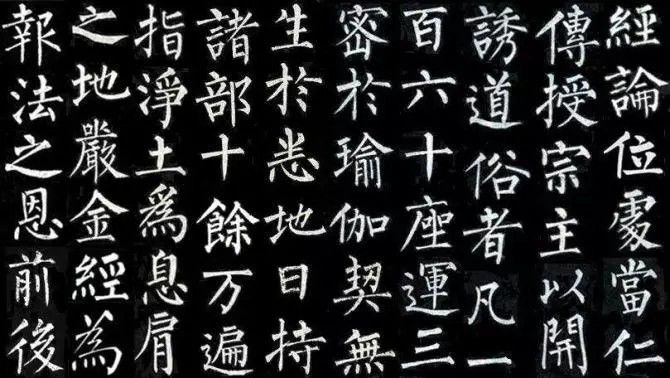 經論位處當仁
傳授宗主以開
誘道俗者凡一
百六十座運三
密於瑜伽契無
生於悉地日持
諸部十餘万遍
指淨土爲息肩
之地嚴金經為
報法之恩前後